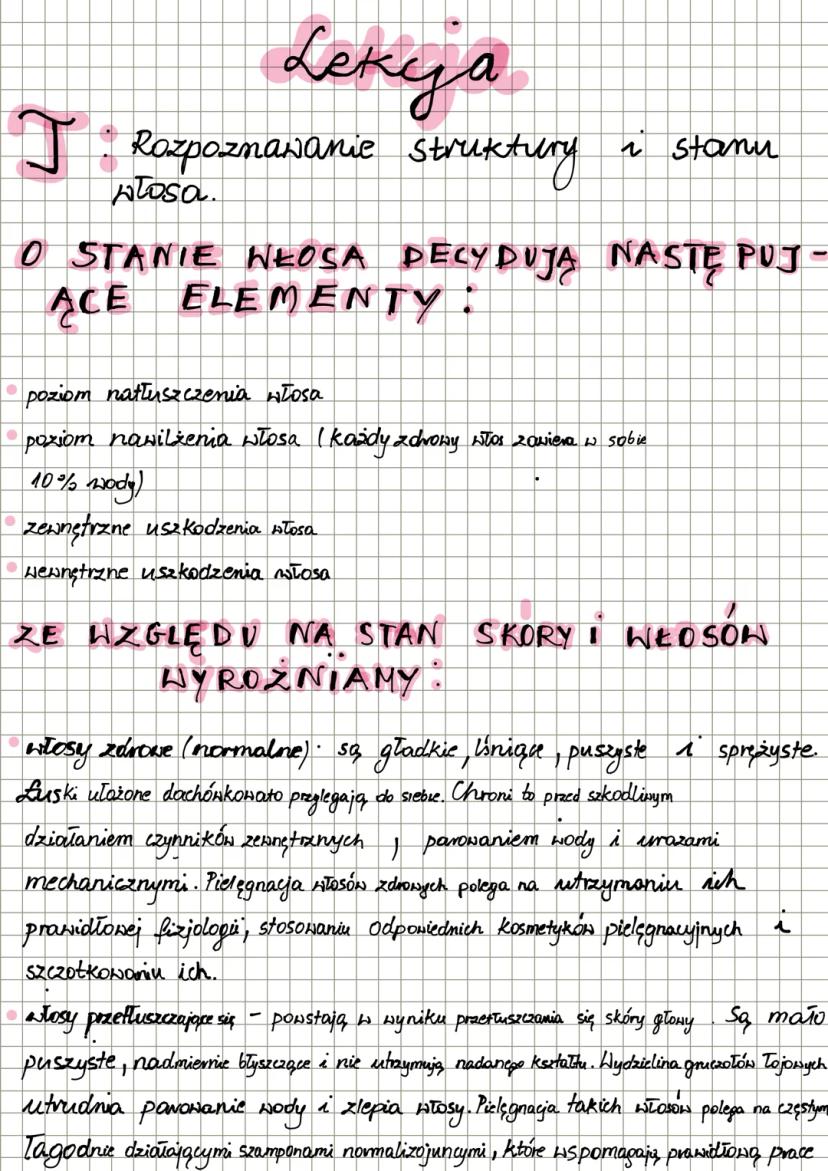 Lekcja
T: Rozpoznawanie struktury i stanu
włosa.
O STANIE WŁOSA DECYDUJĄ NASTĘPUJ-
ĄCE ELEMENTY:
• poziom natłuszczenia włosa
• poziom nawilżenia włosa (każdy zdrowy włos zawiera w sobie
10% wody)
• zewnętrzne uszkodzenia włosa
• wewnętrzne uszkodzenia włosa
ZE WZGLĘDU NA STAN SKÓRY I WŁOSÓW
WYROŻNIAMY:
• włosy zdrowe (normalne) · są gładkie, lśniące, puszyste i sprężyste.
Łuski ułożone dachówkowato przylegają do siebie. Chroni to przed szkodliwym
działaniem czynników zewnętrznych, parowaniem wody i urazami
mechanicznymi. Pielęgnacja włosów zdrowych polega na utrzymaniu ich
prawidłowej fizjologii, stosowaniu odpowiednich kosmetyków pielęgnacyjnych i
szczotkowaniu ich.
• włosy przetłuszczające się – powstają w wyniku przetłuszczania się skóry głowy. Są mało
puszyste, nadmiernie błyszczące i nie utrzymują nadanego kształtu. Wydzielina gruczołów łojowych
utrudnia parowanie wody i zlepia włosy. Pielęgnacja takich włosów polega na częstym
łagodnie działającymi szamponami normalizojuncymi, które wspomagają prawidłową prace